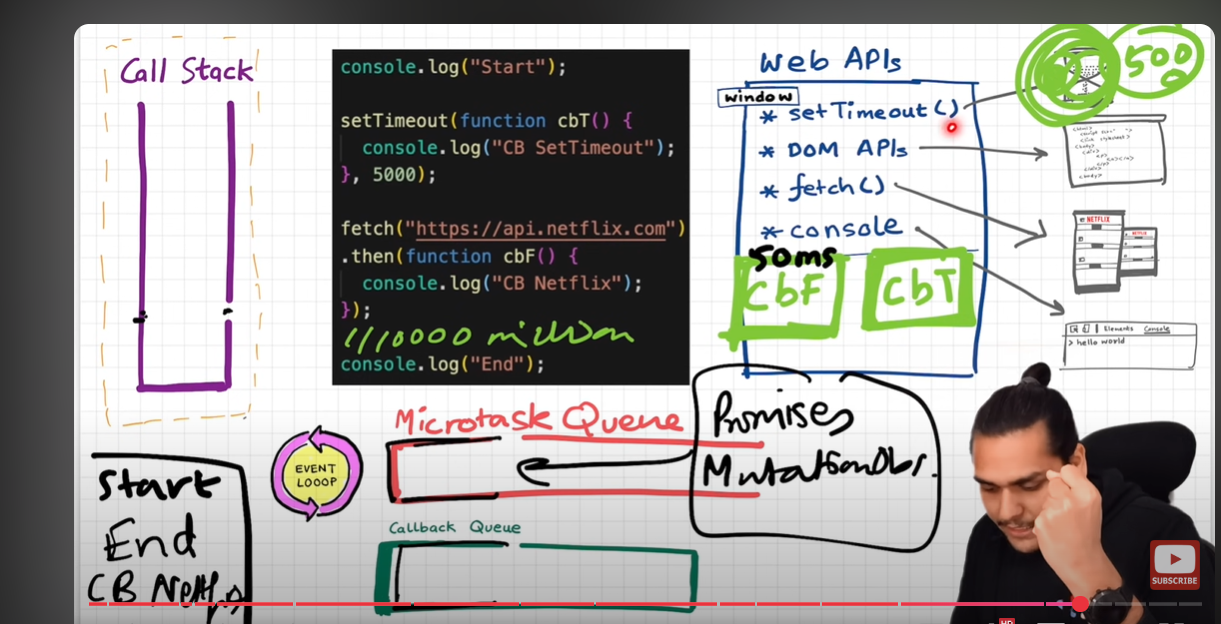 Call Stack
console.log("Start");
setTimeout(function cbT() {
console.log("CB SetTimeout");
}, 5000);
fetch("https://api.netflix.com")
.then(function cbF() {
console.log("CB Netflix");
});
1/10000 million
console.log("End");
Web APIs
window
* setTimeout()
* DOM APIs
* fetch()
* console
50ms
CbF
CbT
500
NETFLIX
Elements Console
> hello world
Microtask Queue
Promises
EVENT
LOOOP
Callback Queue
Start
End
SUBSCRIBE
HD